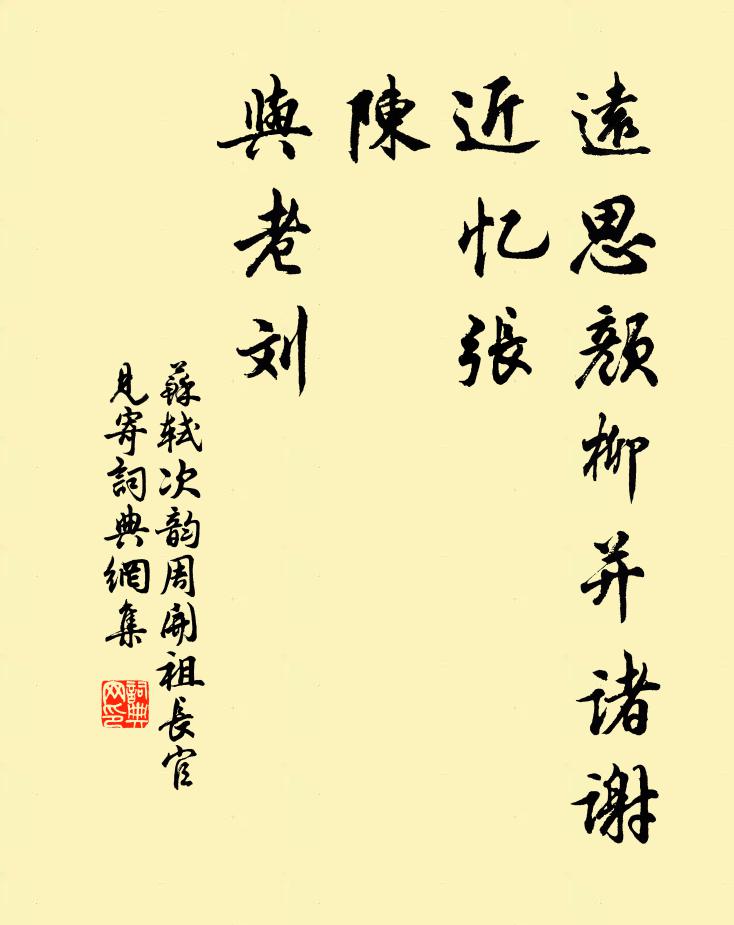 遠思顏柳并諸謝
近忆張
陳
與老刘
蘇軾次韵周開祖長官
見寄詞典網集
詞典
网印